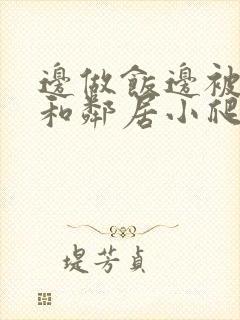 邊做飯邊被
和鄰居小爬
堤芳貞